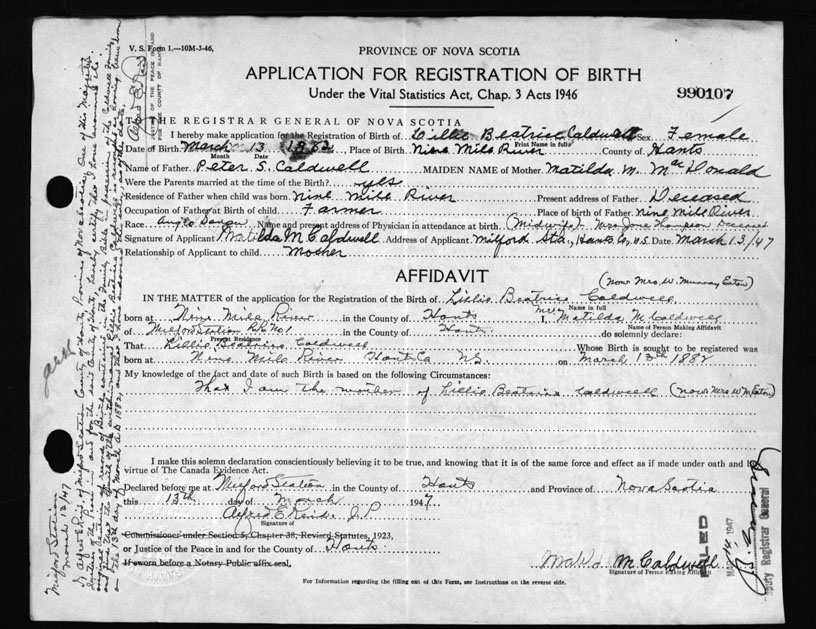 V. S. Form 1.—10M-3-46,
PROVINCE OF NOVA SCOTIA
APPLICATION FOR REGISTRATION OF BIRTH
Under the Vital Statistics Act, Chap. 3 Acts 1946
990107
THE REGISTRAR GENERAL OF NOVA SCOTIA
I hereby make application for the Registration of Birth of Lillie Beatrice Caldwell Sex Female
Print Name in full
Date of Birth March 13 1882, Place of Birth Nine Mile River County of Hants
Month Date
Name of Father Peter S. Caldwell MAIDEN NAME of Mother Matilda M. MacDonald
Were the Parents married at the time of Birth? yes
Residence of Father when child was born Nine Mile River Present address of Father Deceased
Occupation of Father at Birth of child Farmer Place of birth of Father Nine Mile River
Race Anglo Saxon Name and present address of Physician in attendance at birth (Midwife) Mrs Thompson Deceased
Signature of Applicant Matilda M Caldwell Address of Applicant Milford Sta., Hants Co, N.S. Date March 13/47
Relationship of Applicant to child Mother
AFFIDAVIT
(Now Mrs W. Murray Eaton)
IN THE MATTER of the application for the Registration of the Birth of Lillie Beatrice Caldwell
Name in full
born at Nine Mile River in the County of Hants I, Mrs Matilda M. Caldwell
Name of Person Making Affidavit
of Milford Station R.R. No 1 in the County of Hants do solemnly declare:
Present Residence
That Lillie Beatrice Caldwell Whose Birth is sought to be registered was
born at Nine Mile River Hants Co N.S. on March 13th 1882
My knowledge of the fact and date of such Birth is based on the following Circumstances:
That I am the mother of Lillie Beatrice Caldwell (now Mrs W M Eaton)
I make this solemn declaration conscientiously believing it to be true, and knowing that it is of the same force and effect as if made under oath and by
virtue of The Canada Evidence Act.
Declared before me at Milford Station in the County of Hants and Province of Nova Scotia
this 13th day of March 1947
Alfred E Reid J.P.
Signature of
Commissioner under Section 5, Chapter 38, Revised Statutes, 1923,
or Justice of the Peace in and for the County of Hants
If sworn before a Notary Public affix seal.
M. Caldwell
Signature of Person Making Affidavit
For Information regarding the filling out of this Form, see Instructions on the reverse side.
FILED
1947
Deputy Registrar General
Milford Station
March 13/47